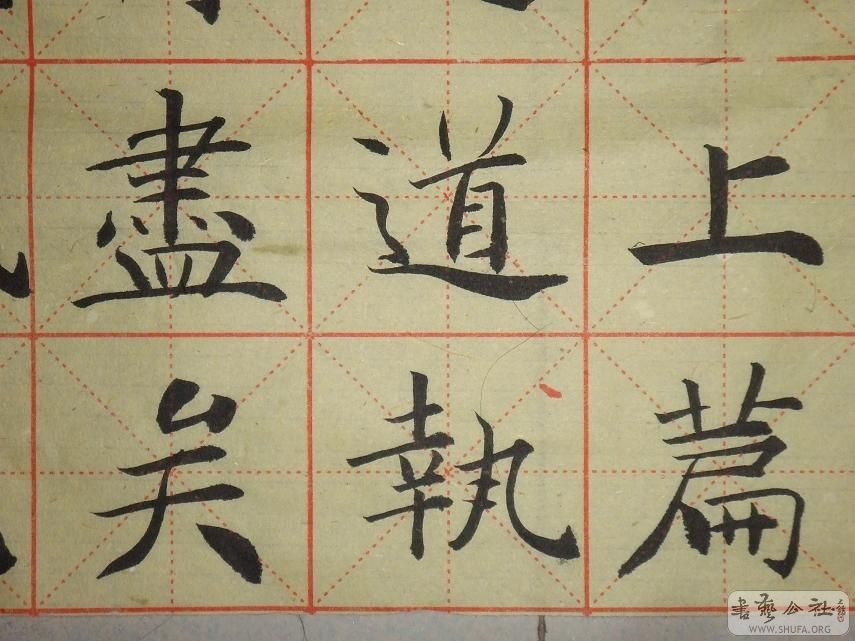 上篇
道執
盡矣
書藝公社
WWW.SHUFA.ORG